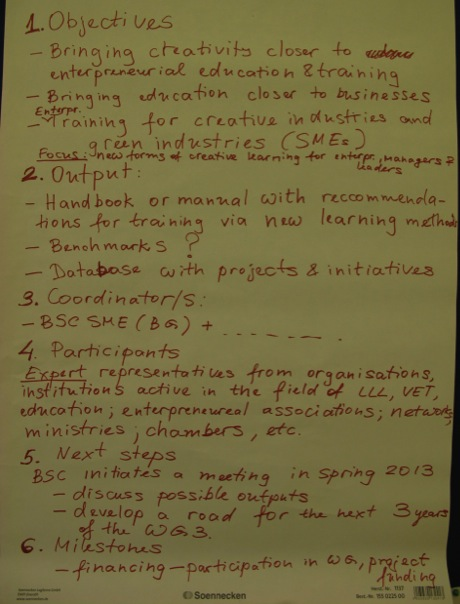 1. Objectives
- Bringing creativity closer to
enterpreneurial education & training
- Bringing education closer to businesses
Enterpr.
- Training for creative industries and
green industries (SMEs)
Focus: new forms of creative learning for enterpr., managers &
leaders
2. Output:
- Handbook or manual with reccommenda-
tions for training via new learning methods
- Benchmarks ?
- Database with projects & initiatives
3. Coordinator/s:
- BSC SME (BG) + _ _ _ _ _ _ .
4. Participants
Expert representatives from organisations,
institutions active in the field of LLL, VET,
education; enterpreneureal associations; networks;
ministries; chambers, etc.
5. Next steps
BSC initiates a meeting in Spring 2013
- discuss possible outputs
- develop a road for the next 3 years
of the WG3.
6. Milestones
- financing - participation in WG, project
funding
Soennecken